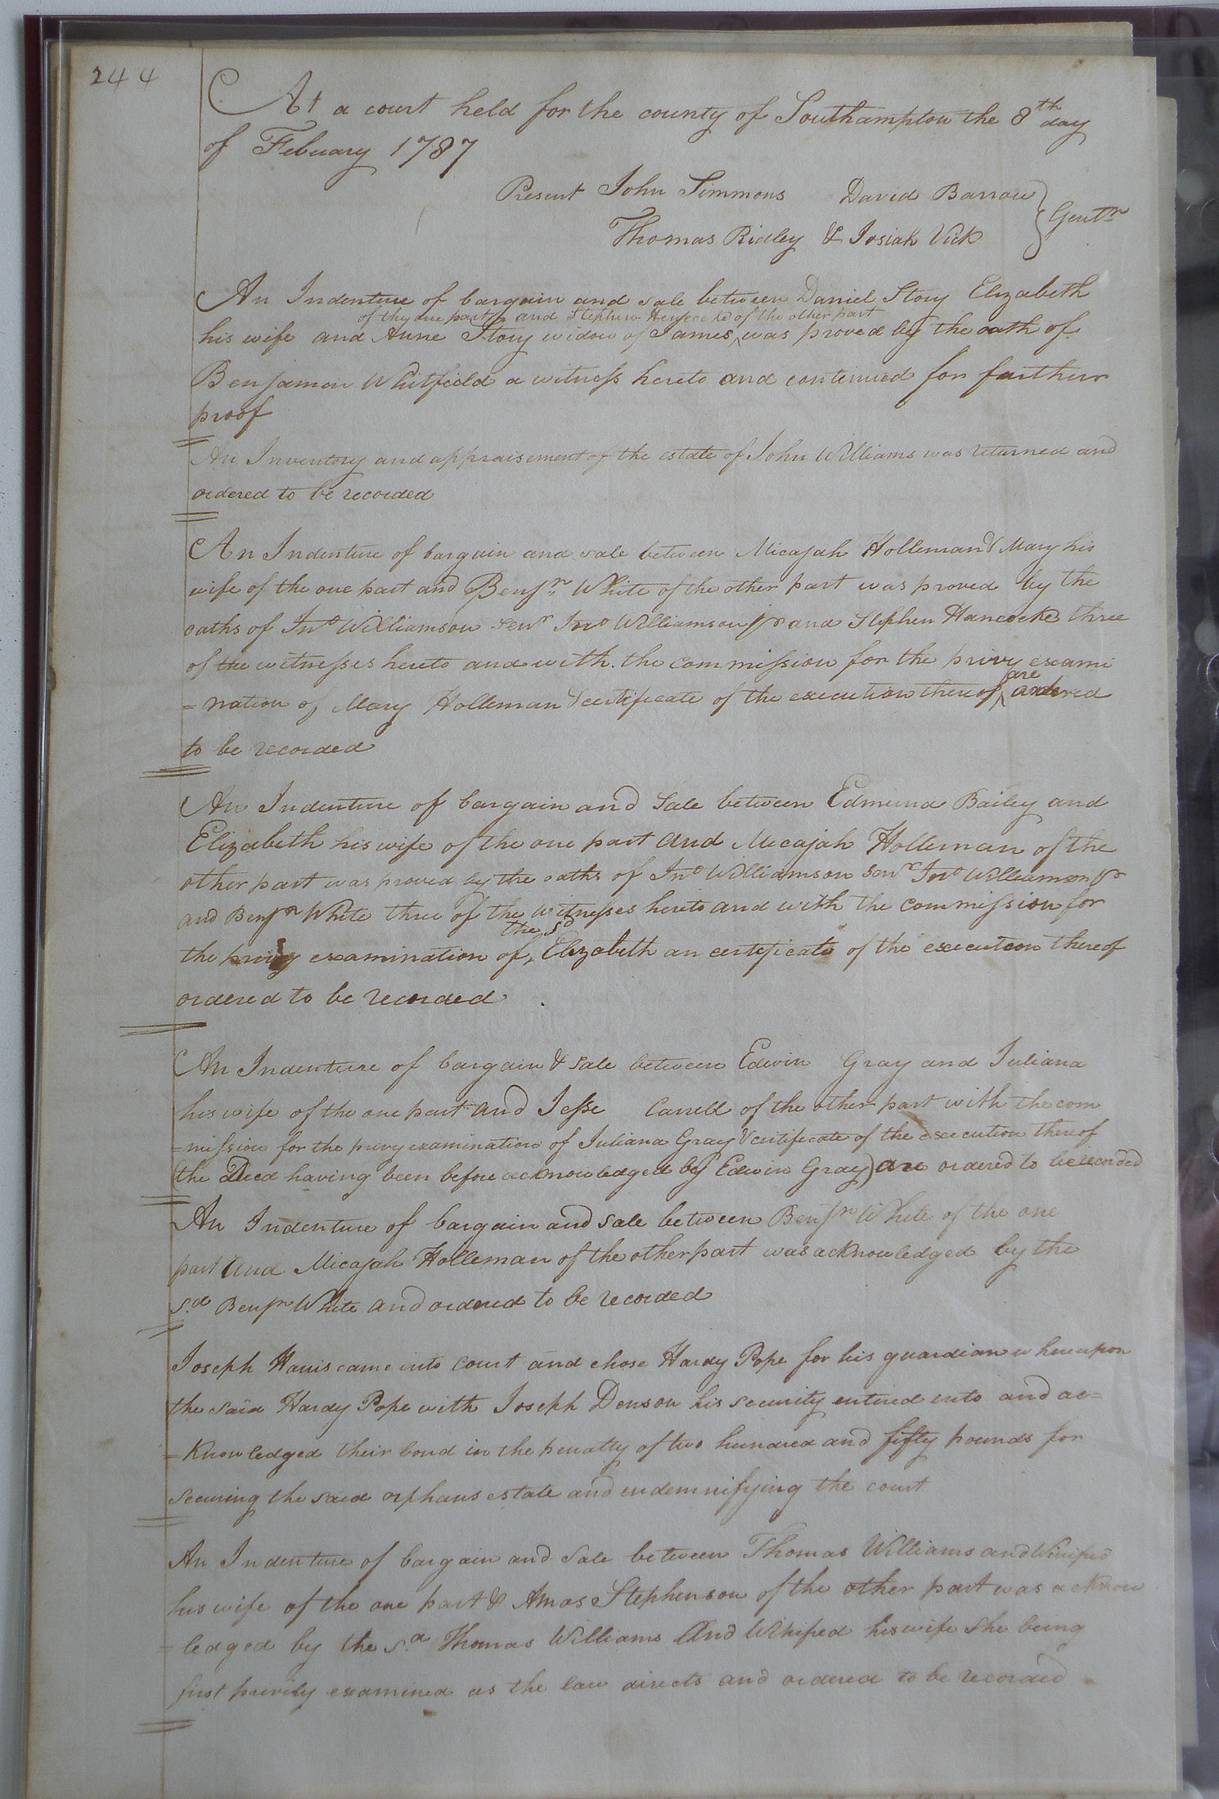 244
At a court held for the county of Southampton the 8th day
of Febuary 1787
Present John Simmons David Barrow
Thomas Ridley & Josiah Vick } Gentn
An Indenture of bargain and sale between Daniel Story Elizabeth
of the one part and Stephen of the other part
his wife and Anne Story widow of James, was proved by the oath of
Benjamin Whitfield a witness hereto and continued for farther
proof
An Inventory and appraisement of the estate of John Williams was returned and
ordered to be recorded
An Indenture of bargain and sale between Micajah Holleman & Mary his
wife of the one part and Benjn White of the other part was proved by the
oaths of Jno Williamson Senr Jno Williamson jr and Stephen Hancocke three
of the witnesses hereto and with the commission for the privy exami
= nation of Mary Holleman & certificate of the execution thereof are ordered
to be recorded
An Indenture of bargain and sale between Edmund Bailey and
Elizabeth his wife of the one part and Micajah Holleman of the
other part was proved by the oaths of Jno Williamson Senr Jno Williamson jr
and Benjn White three of the witnesses hereto and with the commission for
the sd
the privy examination of, Elizabeth an certificate of the execution thereof
ordered to be recorded
An Indenture of bargain & sale between Edwin Gray and Juliana
his wife of the one part and Jesse Carrell of the other part with the com
=mission for the privy examination of Juliana Gray & certificate of the execution thereof
the Deed having been before acknowledged by Edwin Gray) are ordered to be recorded
An Indenture of bargain and sale between Benjn White of the one
part and Micajah Holleman of the other part was acknowledged by the
sd Benjn White and ordered to be recorded
Joseph Harris came into court and chose Hardy Pope for his guardian whereupon
the said Hardy Pope with Joseph Denson his security entered into and ac=
=knowledged their bond in the penalty of two hundred and fifty pounds for
securing the said orphans estate and indemnifying the court
An Indenture of bargain and sale between Thomas Williams and Winifred
his wife of the one part & Amos Stephenson of the other part was acknow
=ledged by the sd Thomas Williams and Winifred his wife she being
first privily examined as the law directs and ordered to be recorded